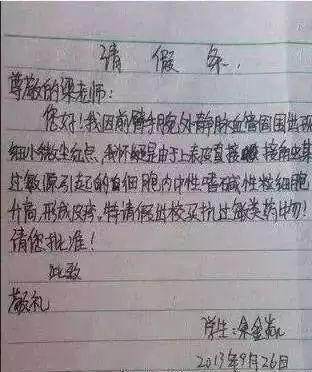 请假条
尊敬的梁老师：
您好！我因前臂手腕外静脉血管周围出现
细小微尘红点，我怀疑是由于上表皮直接接触某
过敏源引起了白细胞内中性嗜碱性粒细胞
升高，形成皮疹，特请假出校买抗过敏类药物！
请您批准！
此致
敬礼
学生：余金
2013年9月26日